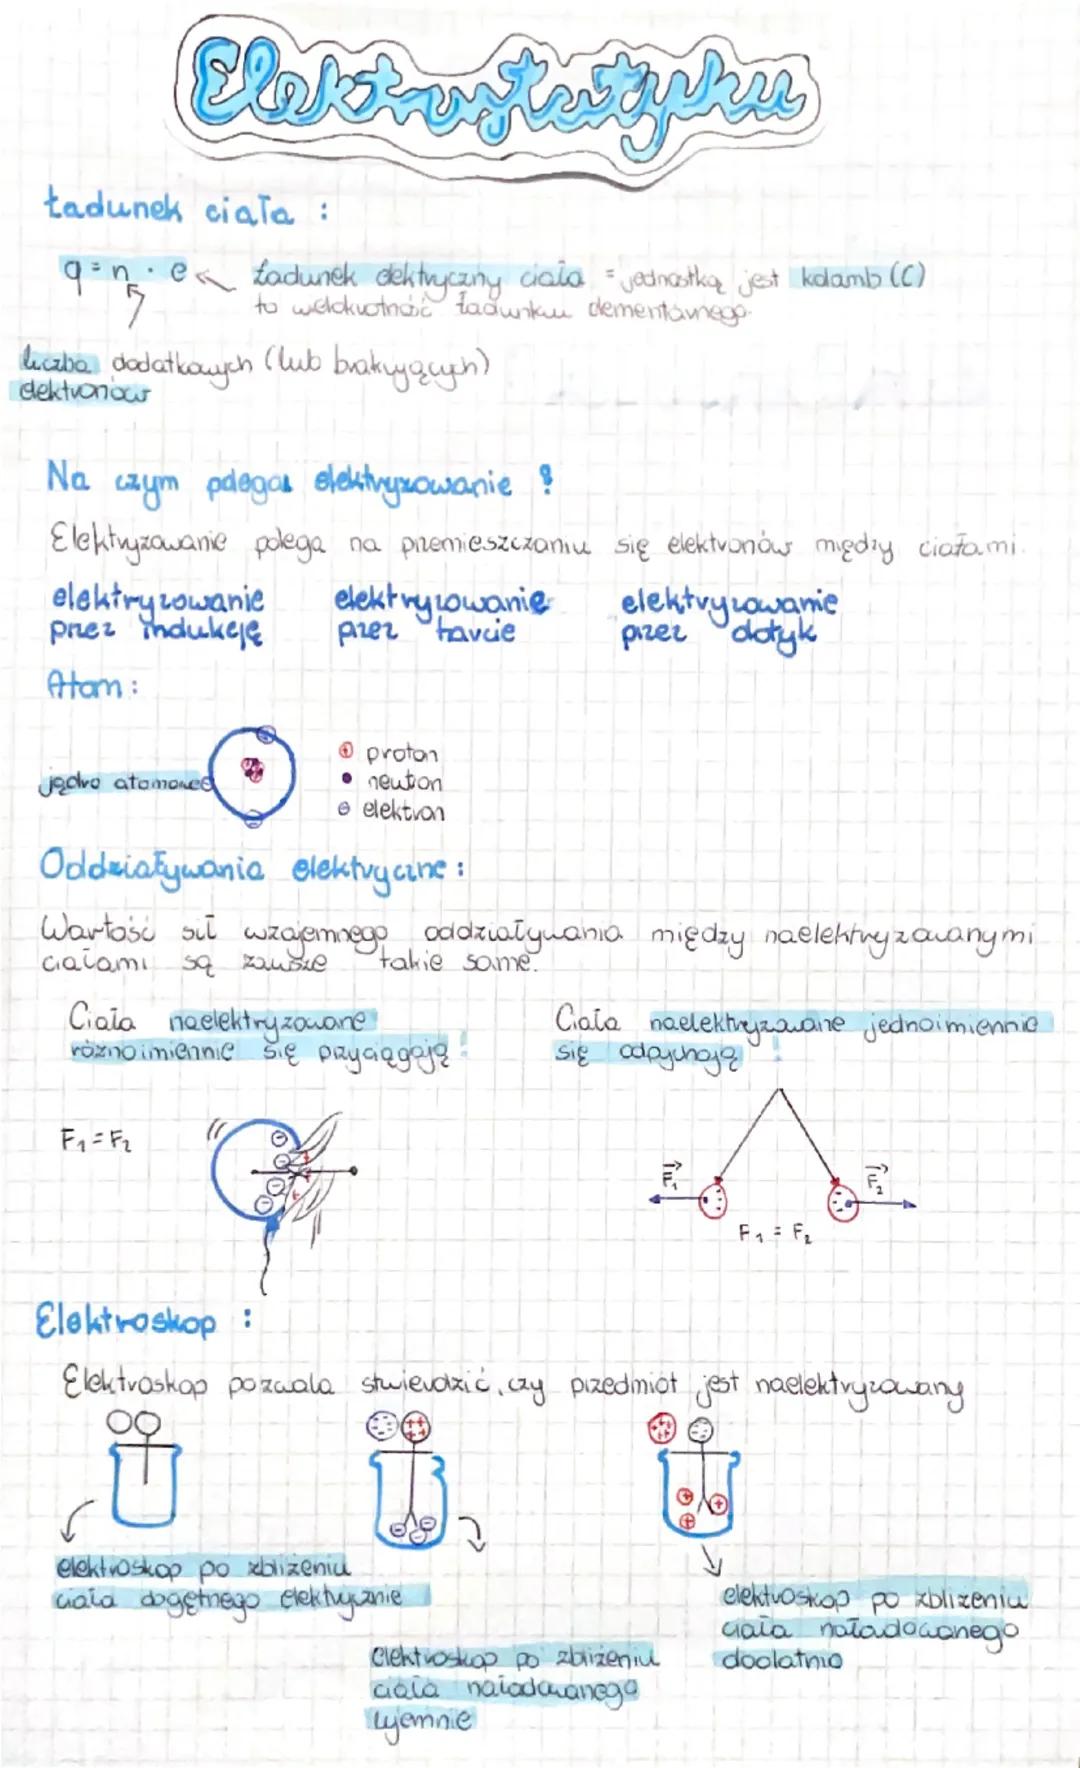 Elektrostatyka
Ładunek ciała :
q = n · e
ładunek elektryczny ciała = jednostką jest kolomb (C)
to wielokrotność ładunku elementarnego.
liczba dodatkowych (lub brakujących)
elektronów
Na czym polega elektryzowanie ?
Elektryzowanie polega na przemieszczaniu się elektronów między ciałami.
elektryzowanie
przez indukcję
elektryzowanie
przez tarcie
elektryzowanie
przez dotyk
Atom :
jądro atomowe
⊕ proton
• neutron
⊖ elektron
Oddziaływania elektryczne :
Wartość sił wzajemnego oddziaływania między naelektryzowanymi
ciałami są zawsze takie same.
Ciała naelektryzowane
różnoimiennie się przyciągają !
Ciała naelektryzowane jednoimiennie
się odpychają !
F₁ = F₂
F₁
F₂
F₁ = F₂
Elektroskop :
Elektroskop pozwala stwierdzić, czy przedmiot jest naelektryzowany
elektroskop po zbliżeniu
ciała obojętnego elektrycznie
elektroskop po zbliżeniu
ciała naładowanego
ujemnie
elektroskop po zbliżeniu
ciała naładowanego
dodatnio